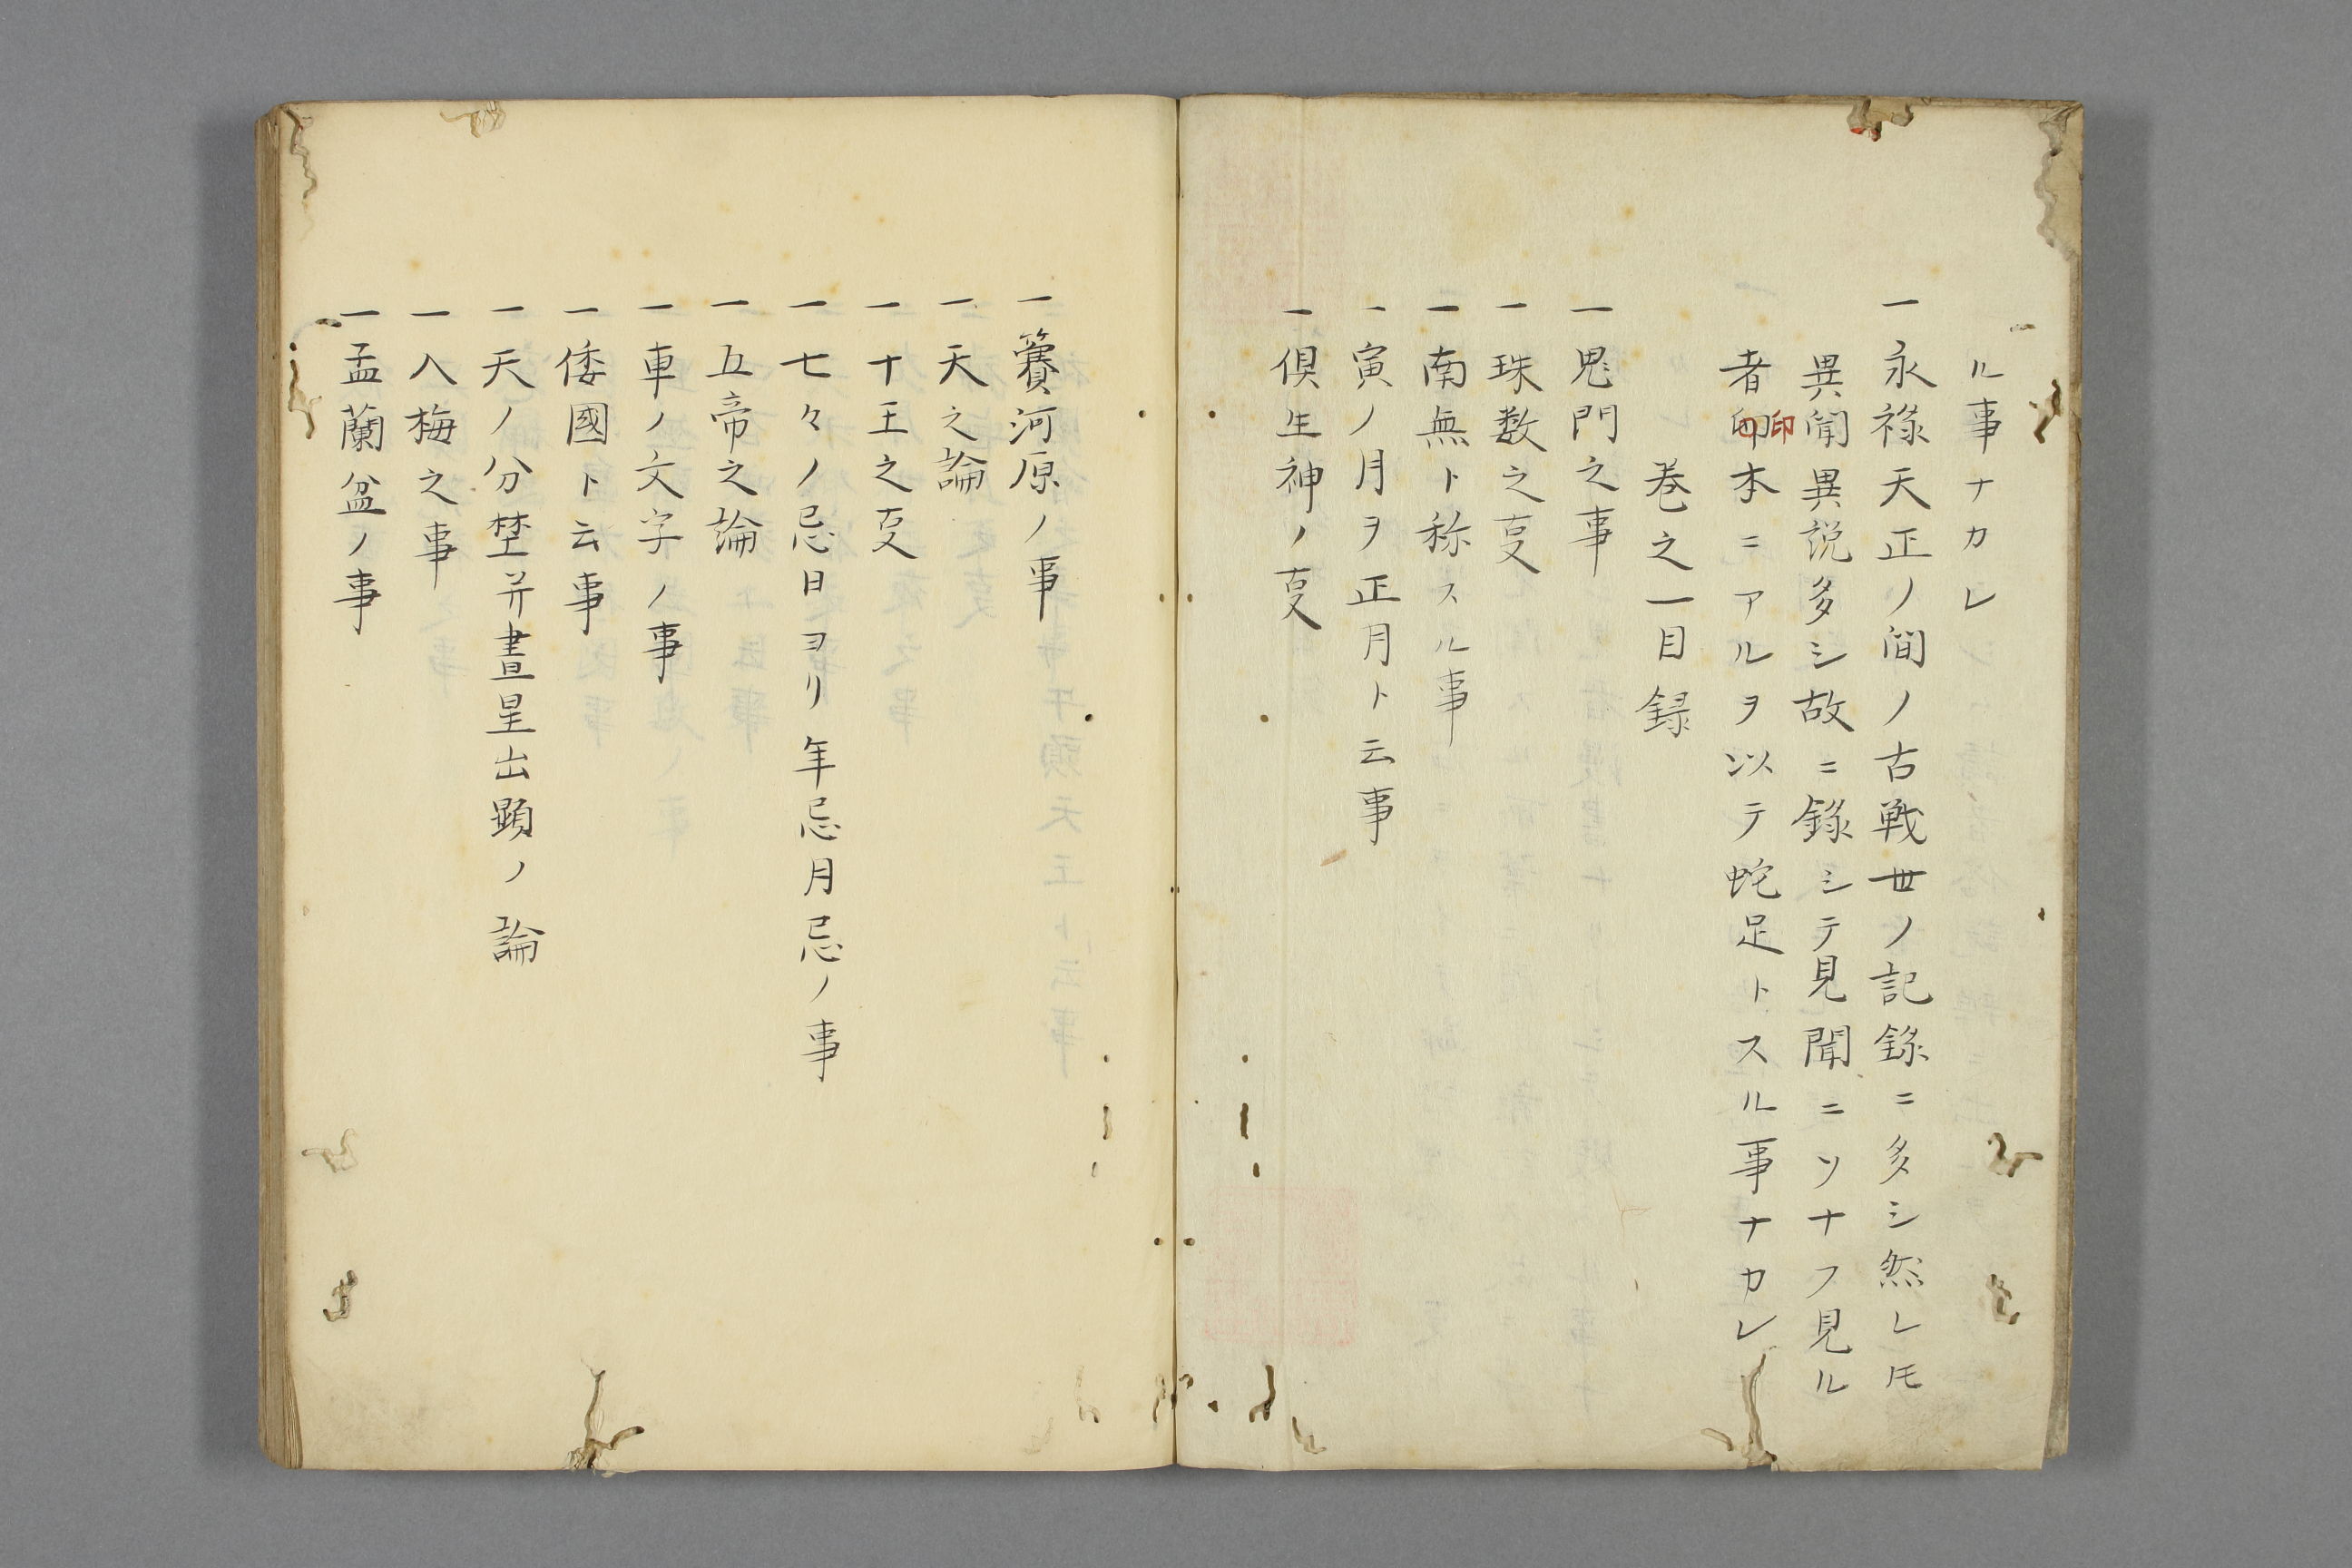 ル事ナカレ
一永祿天正ノ間ノ古戦世ノ記録ニ多シ然レ𪜈
異聞異説多シ故ニ録シテ見聞ニソナフ見ル
者印本ニアルヲ以テ蛇足トスル事ナカレ
印
巻之一目録
一鬼門之事
一珠数之㕝
一南無ト称スル事
一寅ノ月ヲ正月ト云事
一倶生神ノ㕝
一賽河原ノ事
一天之論
一十王之㕝
一七々ノ忌日ヨリ年忌月忌ノ事
一五帝之論
一車ノ文字ノ事
一倭國ト云事
一天ノ分埜并晝星出顕ノ論
一入梅之事
一盂蘭盆ノ事